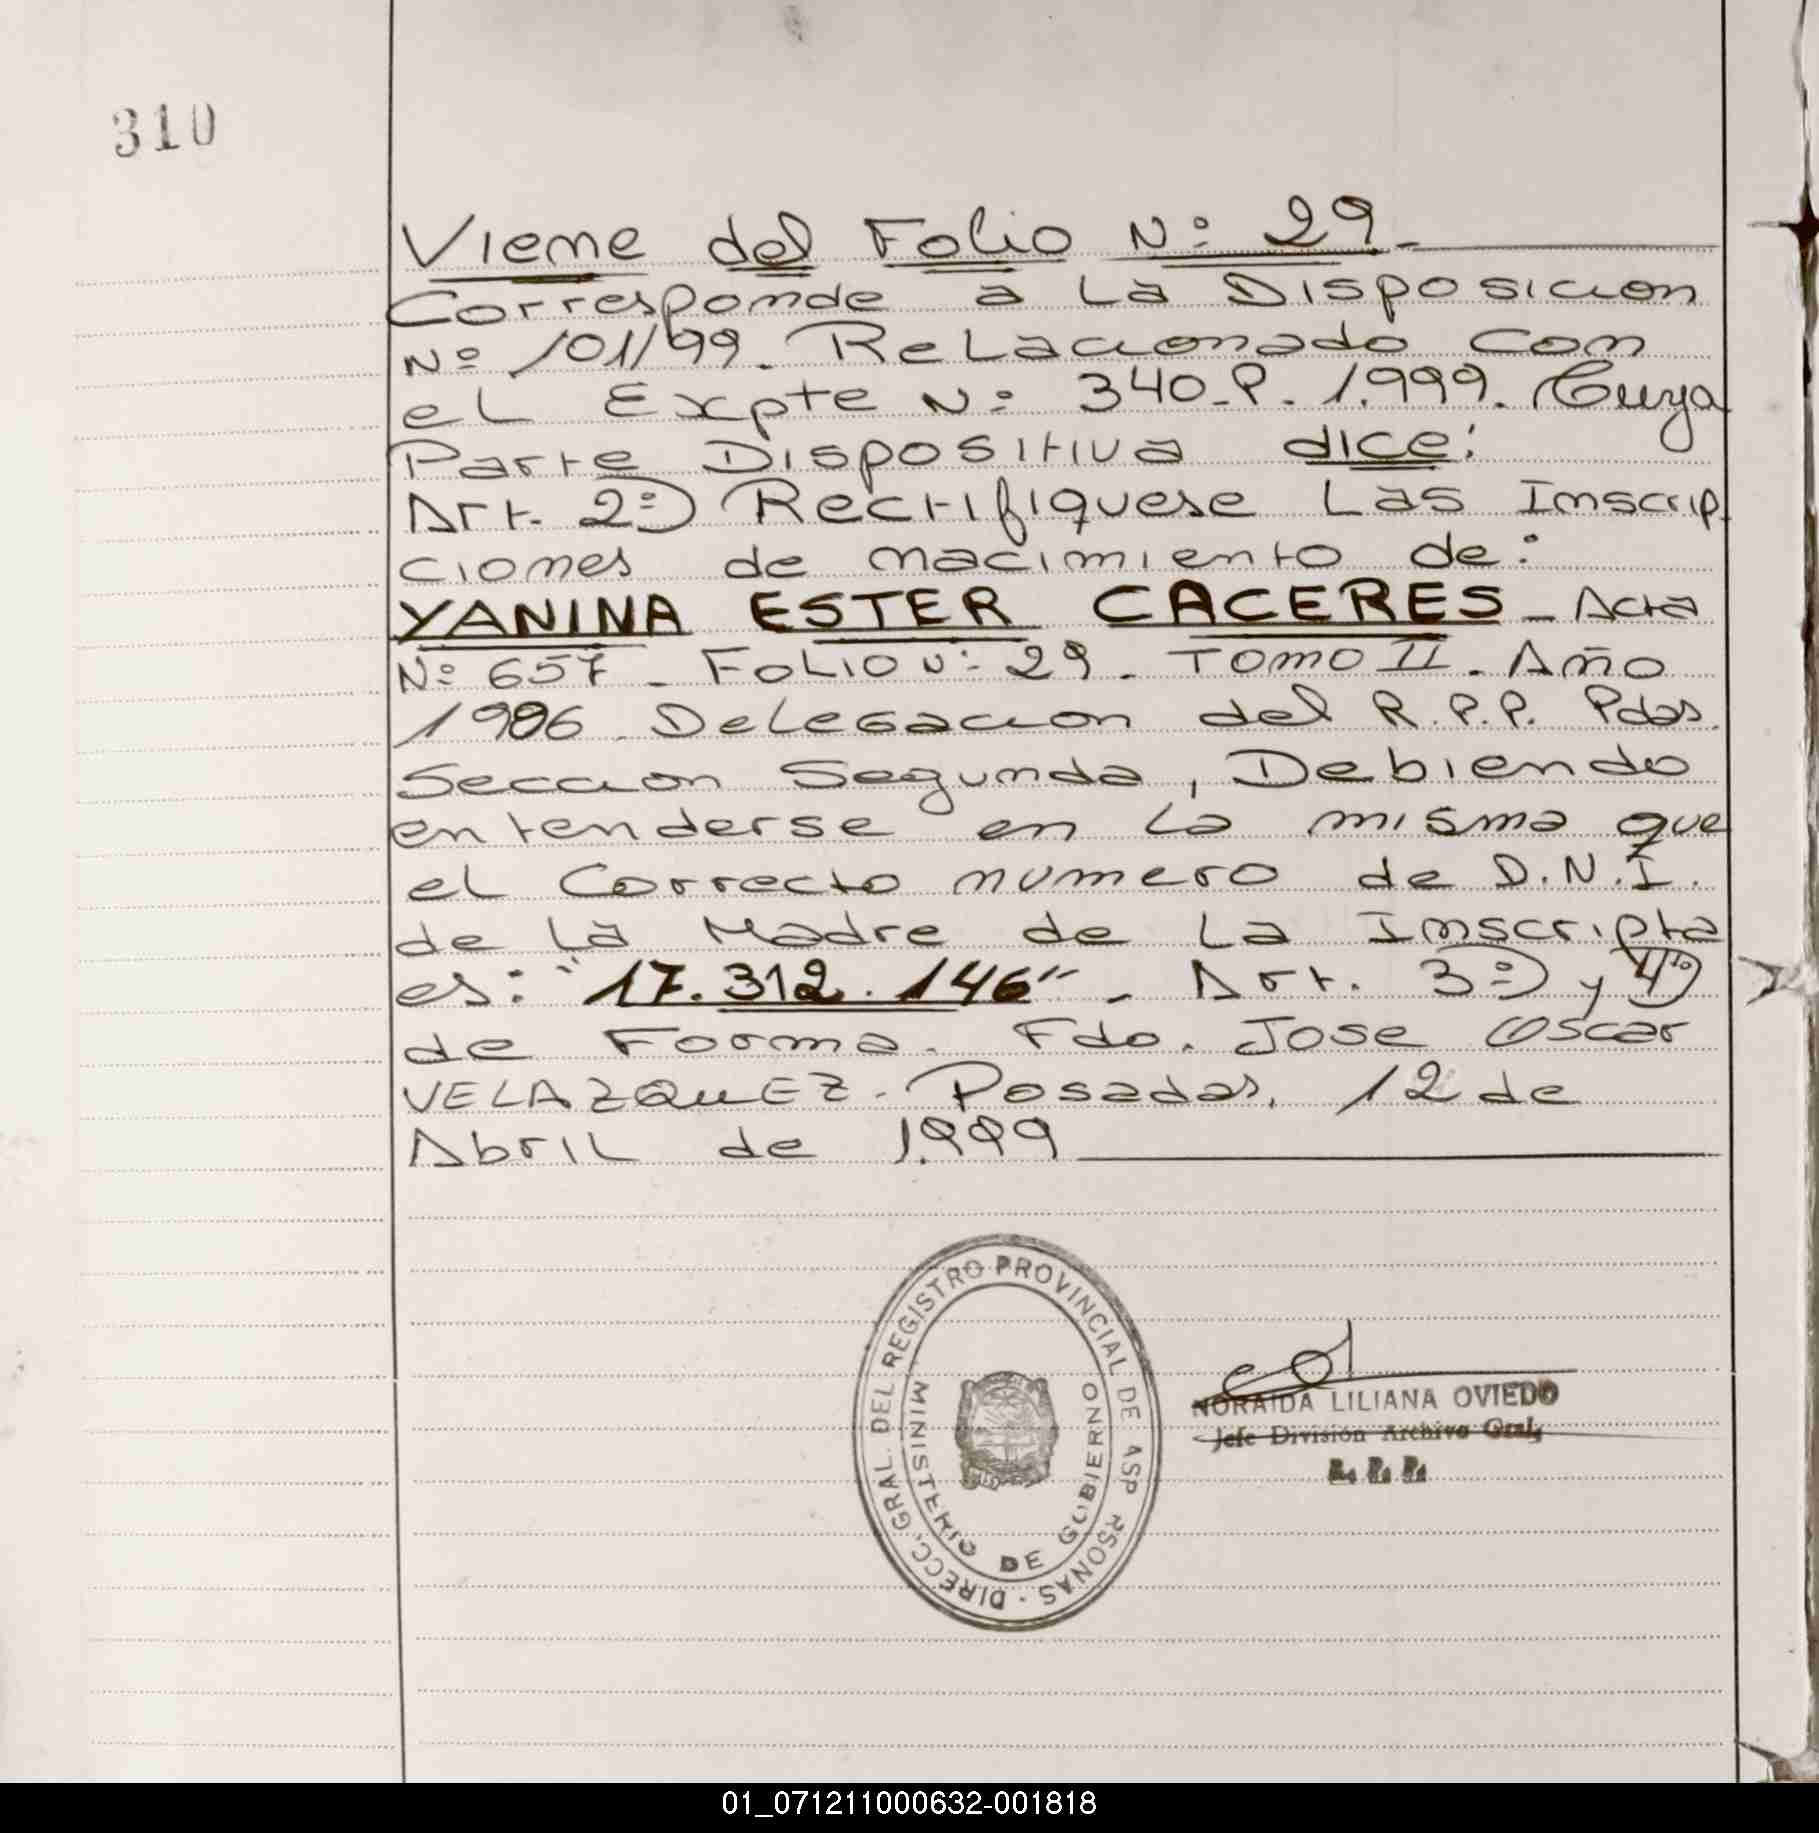 310
Viene del Folio Nº 29.-
Corresponde a La Disposicion
Nº 101/99. Relacionado con
el Expte Nº 340-P. 1.999. Cuya
Parte Dispositiva dice:
Art. 2º) Rectifiquese Las Inscrip
ciones de nacimiento de:
YANINA ESTER CACERES - Acta
Nº 657 - Folio Nº 29 - Tomo II - Año
1986. Delegacion del R.P.P. Pdas.
Seccion Segunda, Debiendo
entenderse en la misma que
el Correcto numero de D.N.I.
de La Madre de La Inscripta
es: "17.312.146" - Art. 3º) y 4to)
de Forma. Fdo. Jose Oscar
VELAZQUEZ. Posadas, 12 de
Abril de 1.999
DIRECC. GRAL DEL REGISTRO PROVINCIAL DE ASP RSONAS
MINISTERIO DE GOBIERNO
NORAIDA LILIANA OVIEDO
Jefe División Archivo Gral,
R. P. P.
01_071211000632-001818